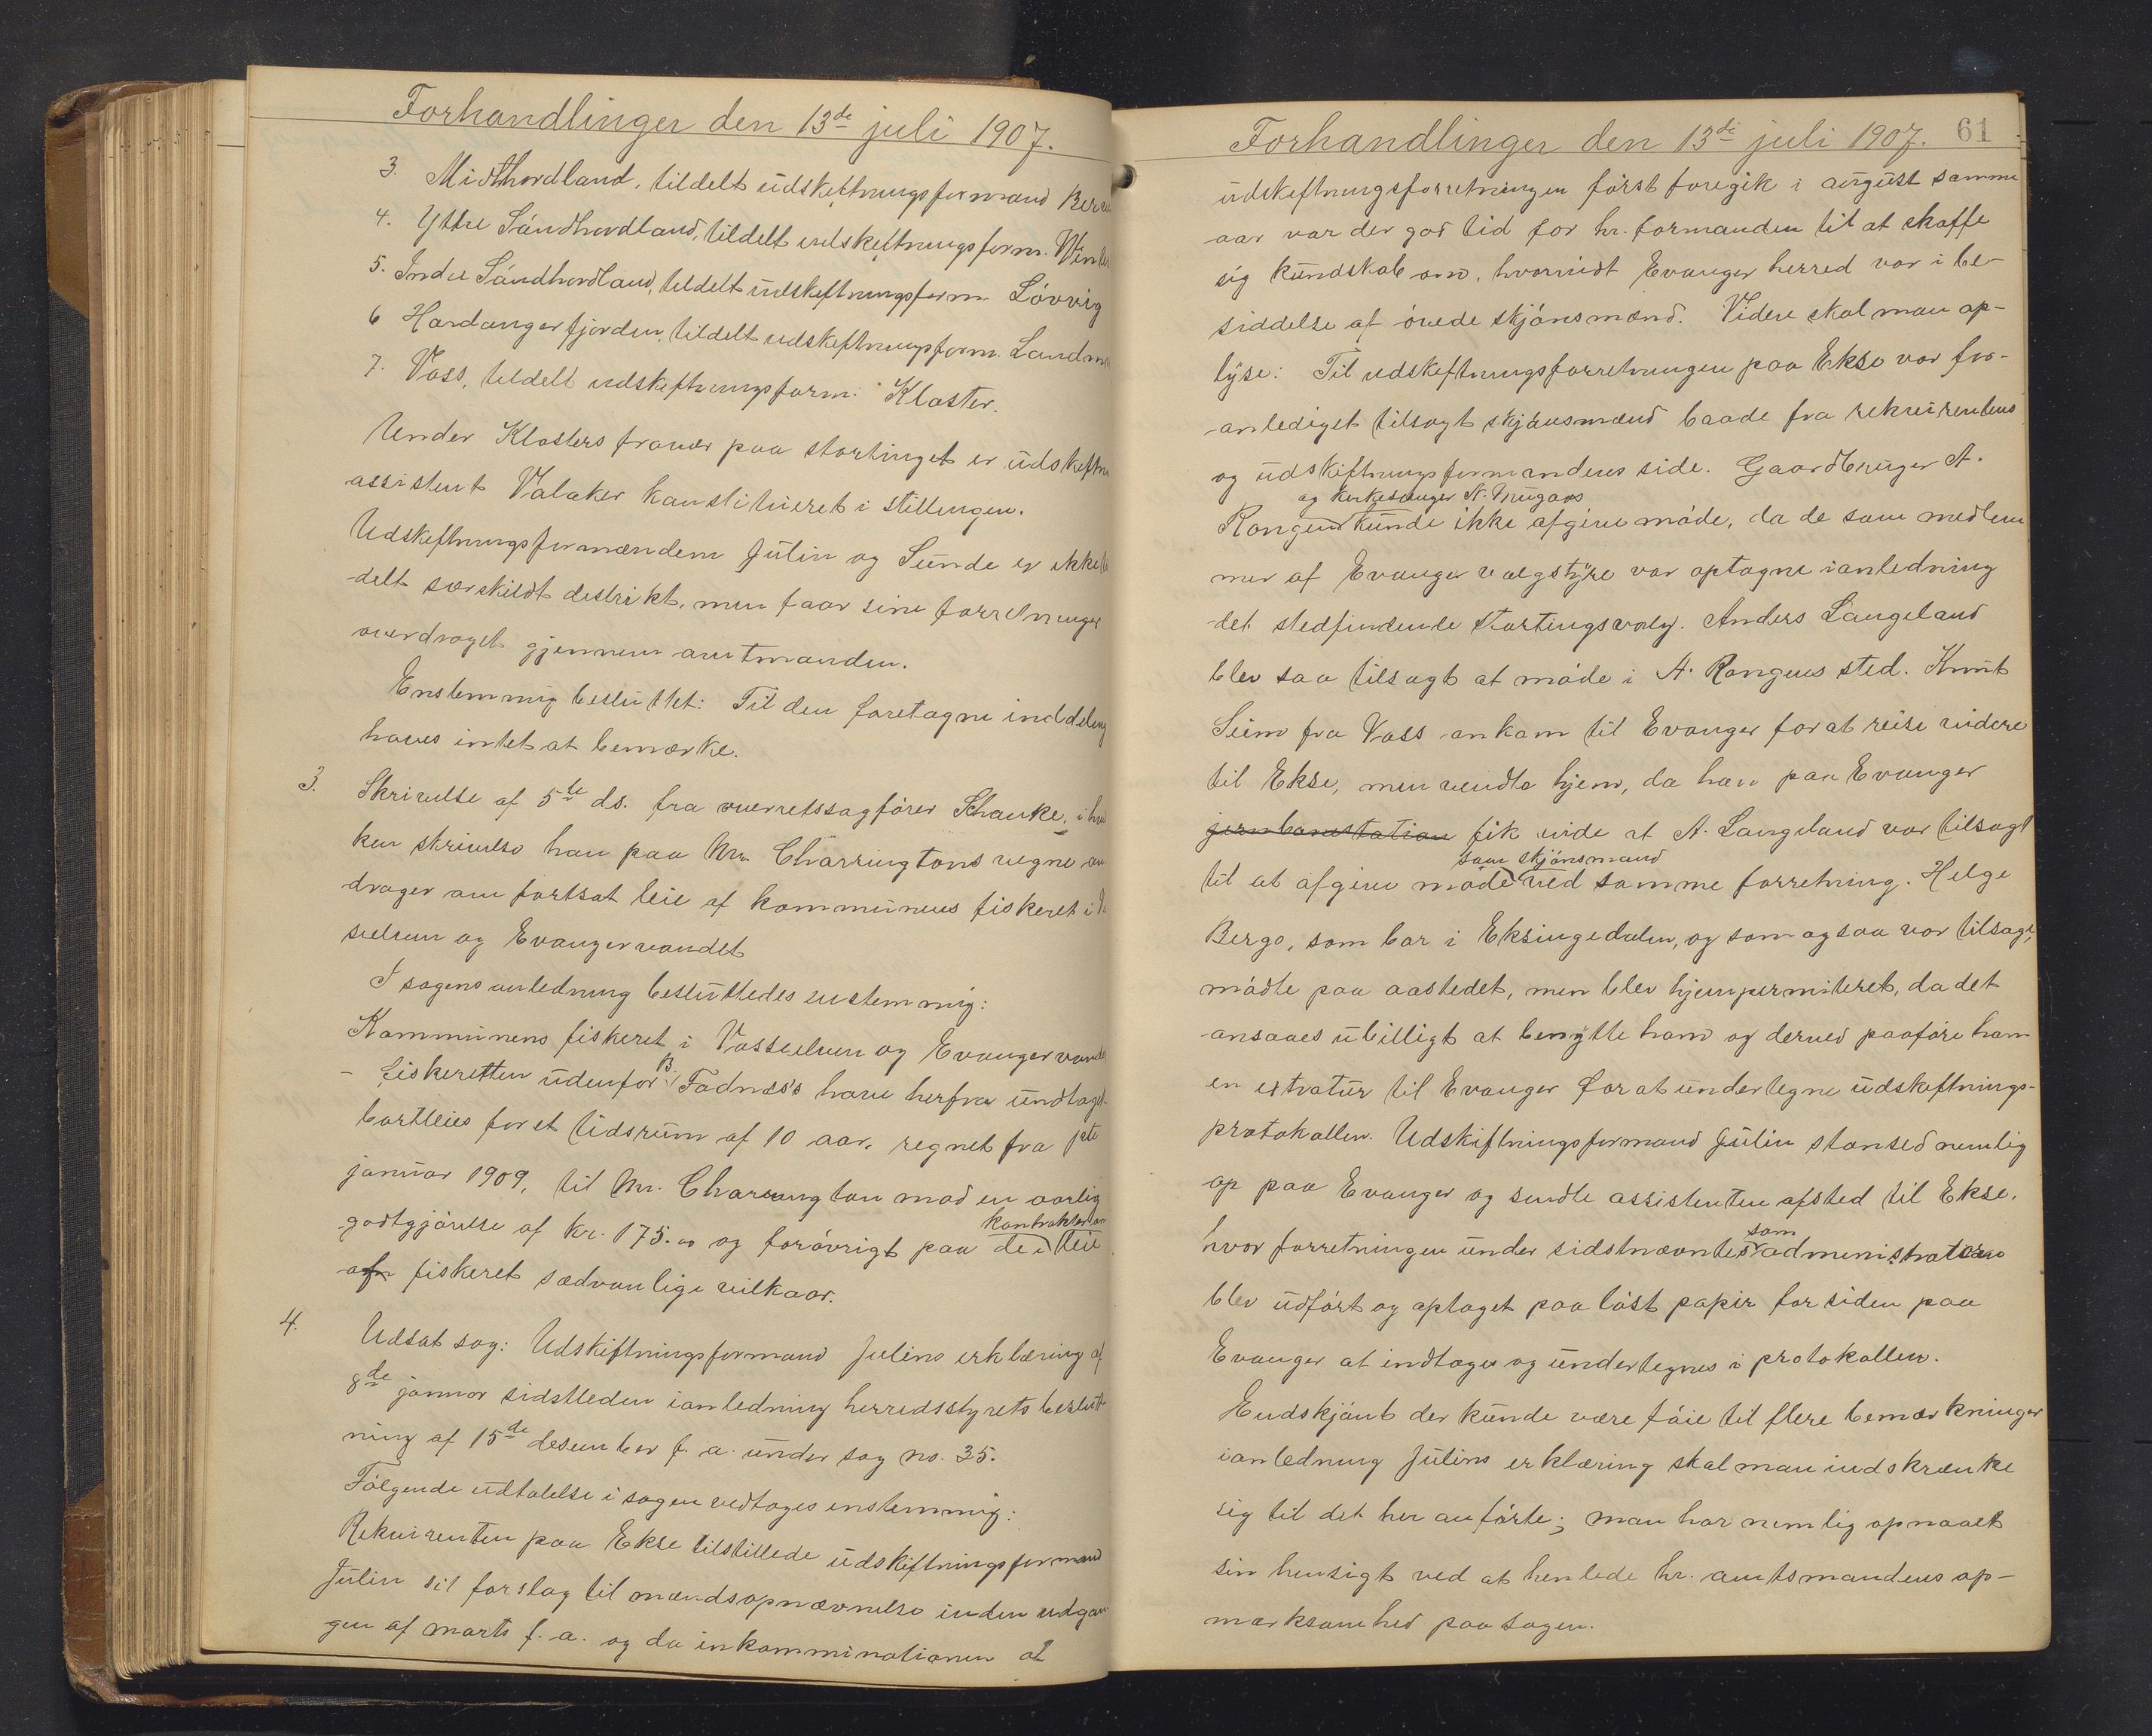 Forhandlinger den 13de juli 1907.
3. Midthordland, tildelt udskiftningsformand
4. Yttre Søndhordland, tildelt udskiftningsform.
5. Indre Søndhordland, tildelt udskiftningsform Løvvig
6 Hardangerfjorden, tildelt udskiftningsform.
7. Voss, tildelt udskiftningsform. Kloster.
Under Klosters fravær paa stortinget er
assistent Valaker konstitueret i stillingen.
Udskiftningsformændene Julin og Sunde er ikke
delt særskildt destrikt, men faar sine forretninger
overdraget gjennem amtmanden.
Enstemmig besluttet: Til den foretagne inddeling
haves intet at bemærke.
3. Skrivelse af 5te ds. fra overretssagfører Schanke, i
ken skrivelse han paa Mr. Charringtons vegne an
drager om fortsat leie af kommunens fiskeret i
selven og Evangervandet
I sagens anledning besluttedes enstemmig:
Kommunens fiskeret i Vosseelven og
- fiskeretten udenfor B. Fadnes's have herfra undtaget -
bortleies for et tidsrum af 10 aar, regnet fra 1ste
januar 1909, til Mr. Charrington mod en aarlig
godtgjørelse af kr. 175.00 og forøvrigt paa de i kontrakter om leie
af fiskeret sædvanlige vilkaar.
4. Udsat sag: Udskiftningsformand Julins erklæring af
8de januar sidstleden ianledning herredsstyrets beslut-
ning af 15de desember f. a. under sag no. 35.
Følgende udtalelse i sagen vedtages enstemmig:
Rekvirenten paa Ekse tilstillede udskiftningsformand
Julin sit forslag til mændsopnævnelse inden udgan-
gen af marts f. a. og da inkamminationen at
Forhandlinger den 13de juli 1907. 61
udskiftningsforretningen først foregik i august samme
aar var der god tid for hr. formanden til at skaffe
sig kundskab om, hvorvidt Evanger herred var i be-
siddelse af øvede skjønsmænd. Videre skal man op-
lyse: Til udskiftningsforretningen paa Ekse var for-
anlediget tilsagt skjønsmænd baade fra rekvirentens
og udskiftningsformandens side. Gaardbruger A.
og kirkesanger N. Mugaas
Rongen kunde ikke afgive møde, da de som medlem
mer af Evanger valgstyre var optagne ianledning
det stedfindende stortingsvalg. Anders Langeland
blev saa tilsagt at møde i A. Rongens sted. Knut
Seim fra Voss ankom til Evanger for at reise videre
til Ekse, men vendte hjem, da han paa Evanger
jernbanestation fik vide at A. Langeland var tilsagt
som skjønsmand
til at afgive møde ved samme forretning. Helge
Bergo, som bor i Eksingedalen, og som ogsaa var tilsagt,
mødte paa aastedet, men blev hjempermiteret, da det
ansaaes ubilligt at benytte ham og derved paaføre ham
en extratur til Evanger for at undertegne udskiftnings-
protokollen. Udskiftningsformand Julin stansed nemlig
op paa Evanger og sendte assistenten afsted til Ekse,
som
hvor forretningen under sidstnævntes administration
blev udført og optaget paa løst papir for siden paa
Evanger at indtages og undertegnes i protokollen.
Endskjønt der kunde være føie til flere bemærkninger
ianledning Julins erklæring skal man indskrænke
sig til det her anførte; man har nemlig opnaaet
sin hensigt ved at henlede hr. amtsmandens op-
mærksomhed paa sagen.